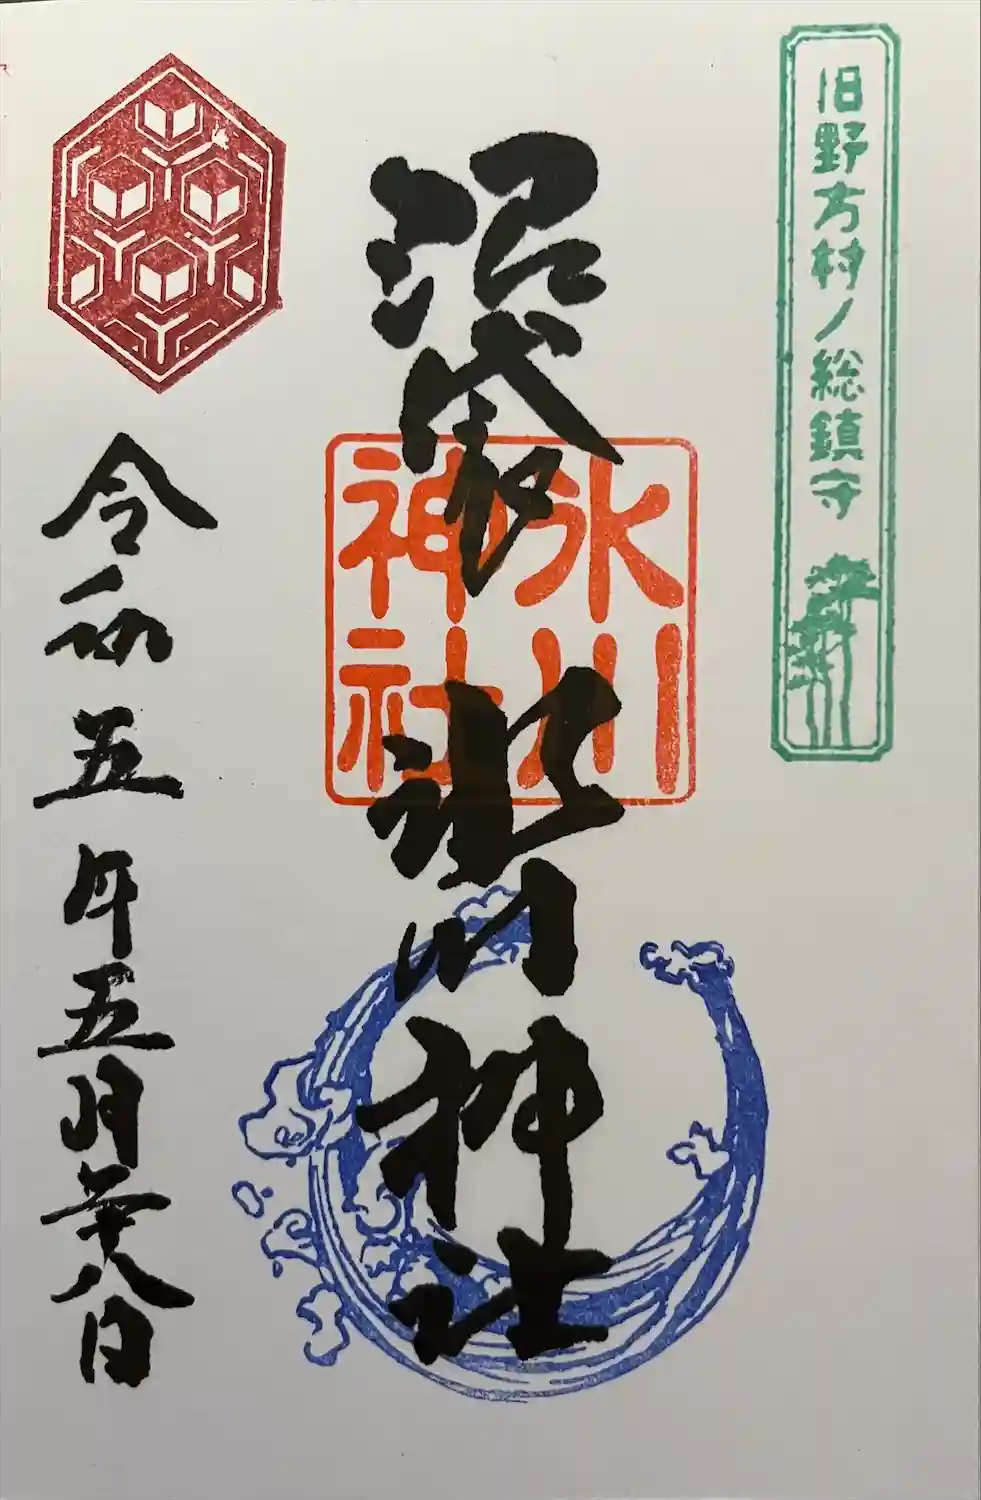 旧野方村ノ総鎮守
沼袋氷川神社
氷川
神社
令和五年五月廿八日